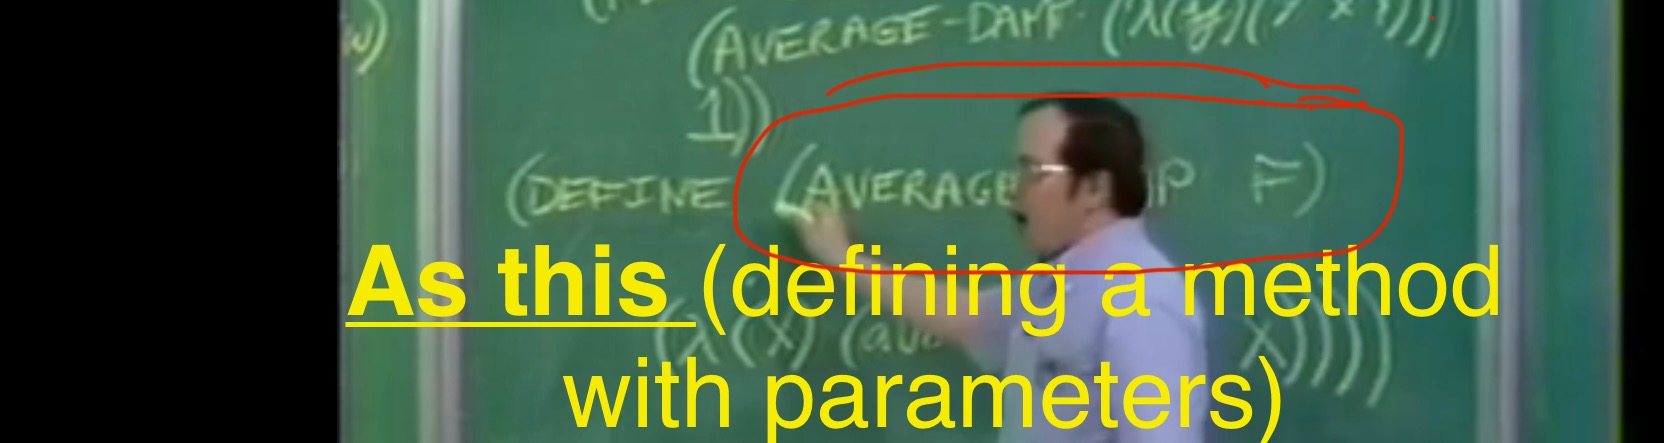 (AVERAGE-DAMP (λ(y)(/ x y)))
1))
(DEFINE (AVERAGE P F)
As this (defining a method
(λ(x) (av x))))
with parameters)